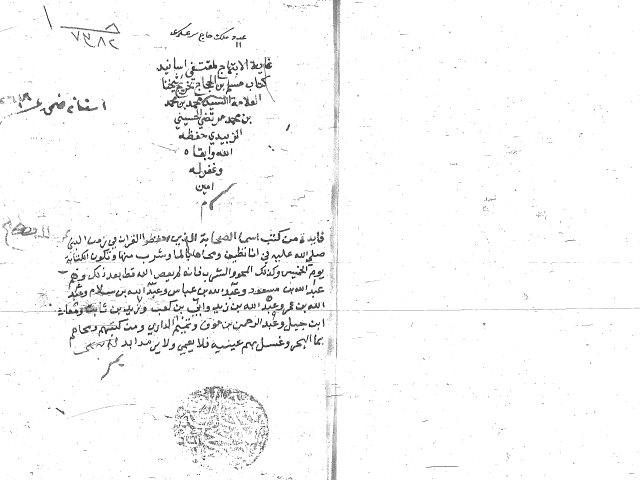 ٧٣٨٢
غاية الابتهاج لمقتفي اسانيد
كتاب مسلم بن الحجاج تخريج شيخنا
العلامة السيد محمد بن محمد
بن محمد مرتضى الحسيني
الزبيدي حفظه
الله وابقاه
وغفر له
امين
م
فايدة من كتب اسما الصحابة الذين حفظوا القران في زمن النبي
صلى الله عليه في اناء نظيف ومحاها بالما وشرب منها وتكون الكتابة
يوم الخميس وكذلك المحو والشرب فانه لم يعص الله قط بعد ذلك وهم
عبدالله بن مسعود وعبدالله بن عباس وعبدالله بن سلام وعبد
الله بن عمر وعبدالله بن زيد وابي بن كعب وزيد بن ثابت ومعاذ
ابن جبل وعبد الرحمن بن عوف وتميم الداري ومن كتبهم ومحاهم
بما البحر وغسل بهم عينيه فلا يعمى ولا يرمد ابدا